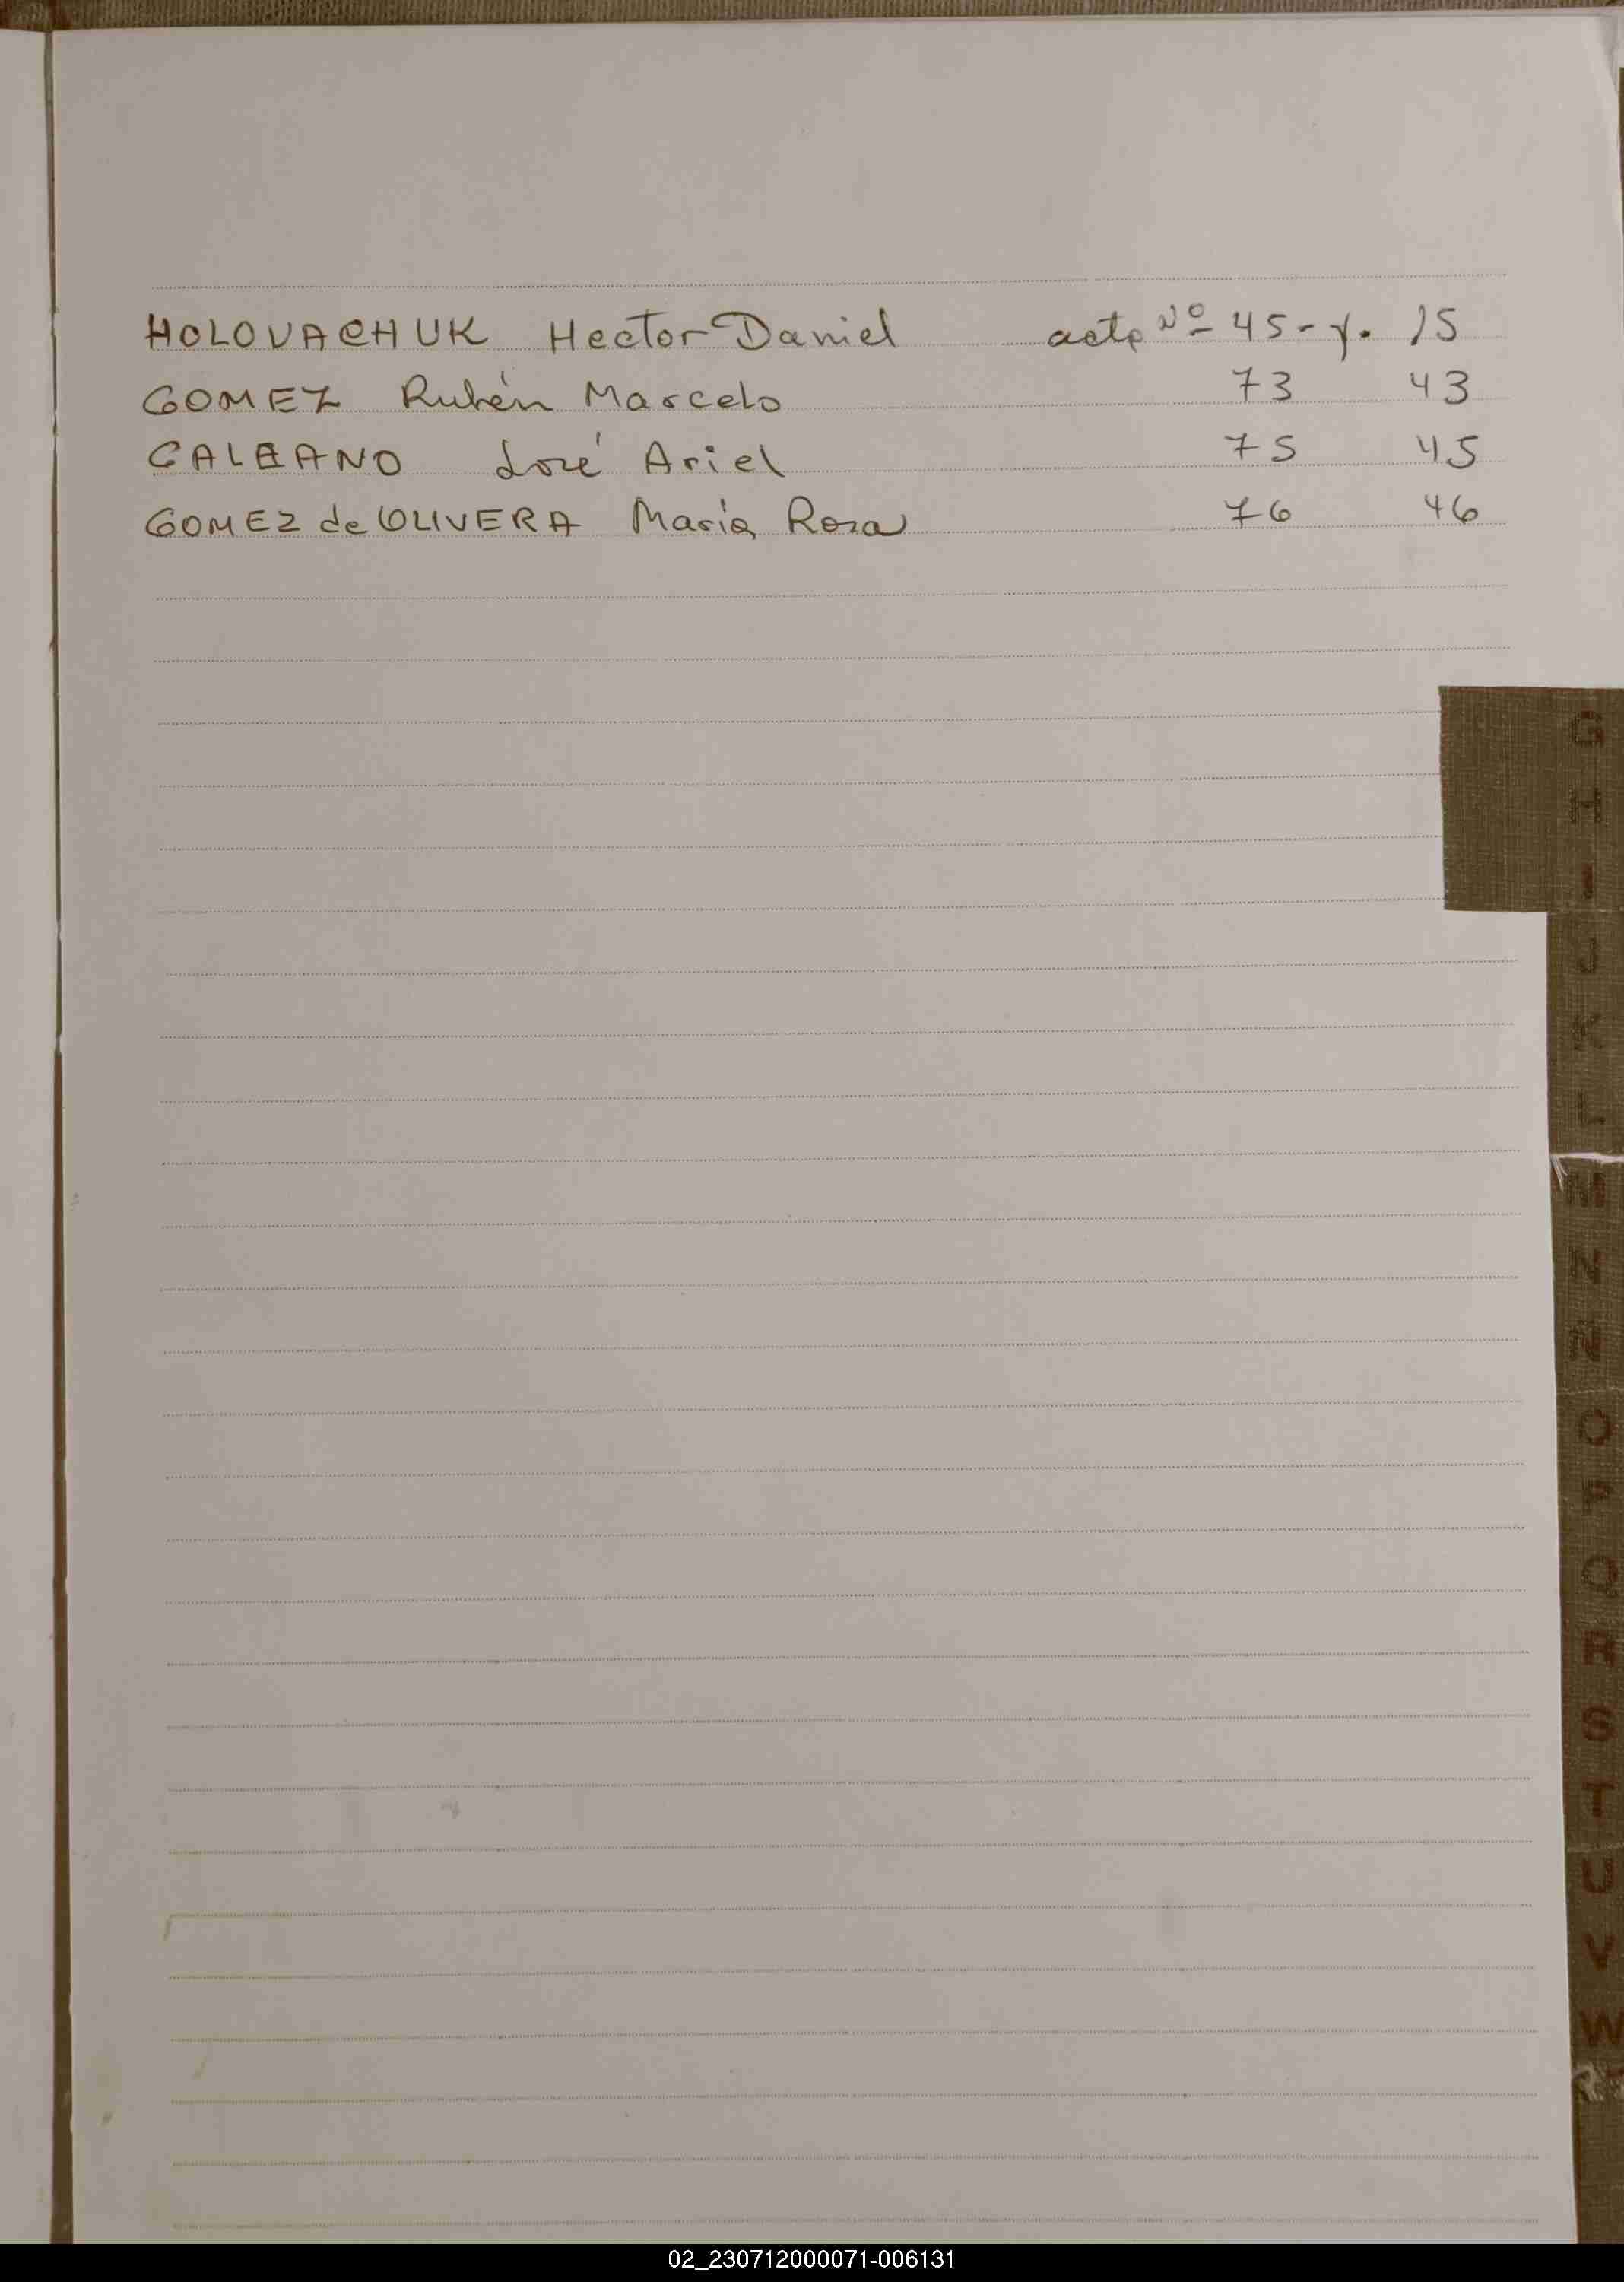 HOLOVACHUK Hector Daniel acta Nº 45 - f. 15
GOMEZ Rubén Marcelo 73 43
GALEANO José Ariel 75 45
GOMEZ de OLIVERA María Rosa 76 46
G
H
I
J
K
L
M
N
Ñ
O
P
Q
R
S
T
U
V
W
02_230712000071-006131